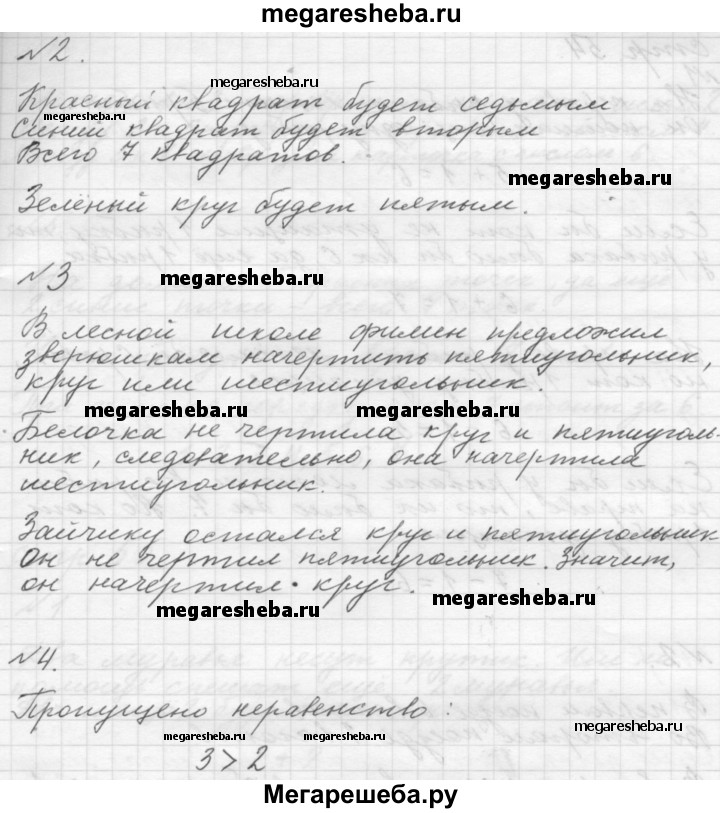 megaresheba.ru
№2.
megaresheba.ru
Красный квадрат будет седьмым
megaresheba.ru
Синий квадрат будет вторым
Всего 7 квадратов.
megaresheba.ru
Зелёный круг будет пятым.
№3
megaresheba.ru
В лесной школе филин предложил
зверюшкам начертить пятиугольник,
круг или шестиугольник.
megaresheba.ru megaresheba.ru
Белочка не чертила круг и пятиуголь-
ник, следовательно, она начертила
шестиугольник.
Зайчику остался круг и пятиугольник
Он не чертил пятиугольник. Значит,
он начертил круг.
megaresheba.ru
megaresheba.ru
№4.
Пропущено неравенство:
megaresheba.ru
megaresheba.ru megaresheba.ru
3 > 2
Мегарешеба.ру